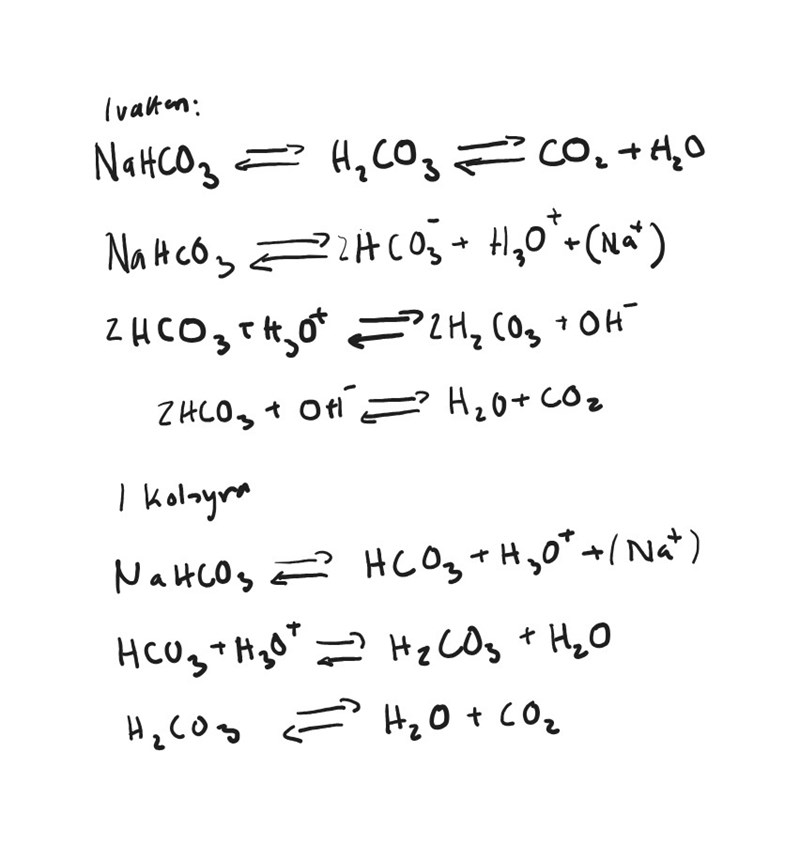 I vatten:
NaHCO₃ ⇌ H₂CO₃ ⇌ CO₂ + H₂O
NaHCO₃ ⇌ 2HCO₃⁻ + H₃O⁺ + (Na⁺)
2HCO₃ + H₃O⁺ ⇌ 2H₂CO₃ + OH⁻
2HCO₃ + OH⁻ ⇌ H₂O + CO₂
I kolsyra
NaHCO₃ ⇌ HCO₃ + H₃O⁺ + (Na⁺)
HCO₃ + H₃O⁺ ⇌ H₂CO₃ + H₂O
H₂CO₃ ⇌ H₂O + CO₂